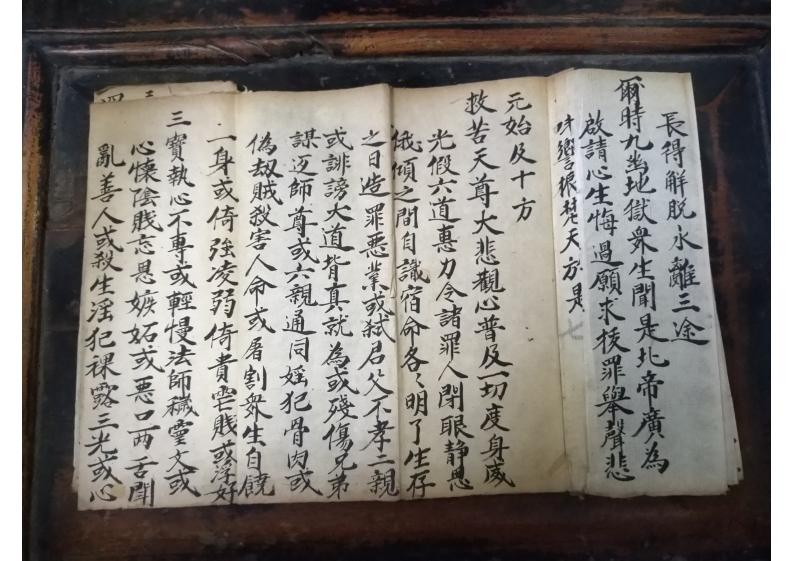 長得解脱永離三途
爾時九幽地獄眾生聞是北帝廣為
啟請心生悔過願求拔罪舉聲悲
天尊是七
元始及十方
救苦天尊大悲觀心普及一切度身威
光假六道惠力令諸罪人閉眼静思
俄頃之間自識宿命各〻明了生存
之日造罪惡業或弒君父不孝二親
或誹謗大道背真就為或殘傷兄弟
謀逆師尊或六親通同婬犯骨肉或
偽劫賊殺害人命或屠割眾生自饒
一身或倚強凌弱倚貴虐賤或淫好
三寶執心不專或輕慢法師穢靈文或
心懷陰賤忘恩嫉妬或惡口兩舌鬪
亂善人或殺生淫犯裸露三光或心